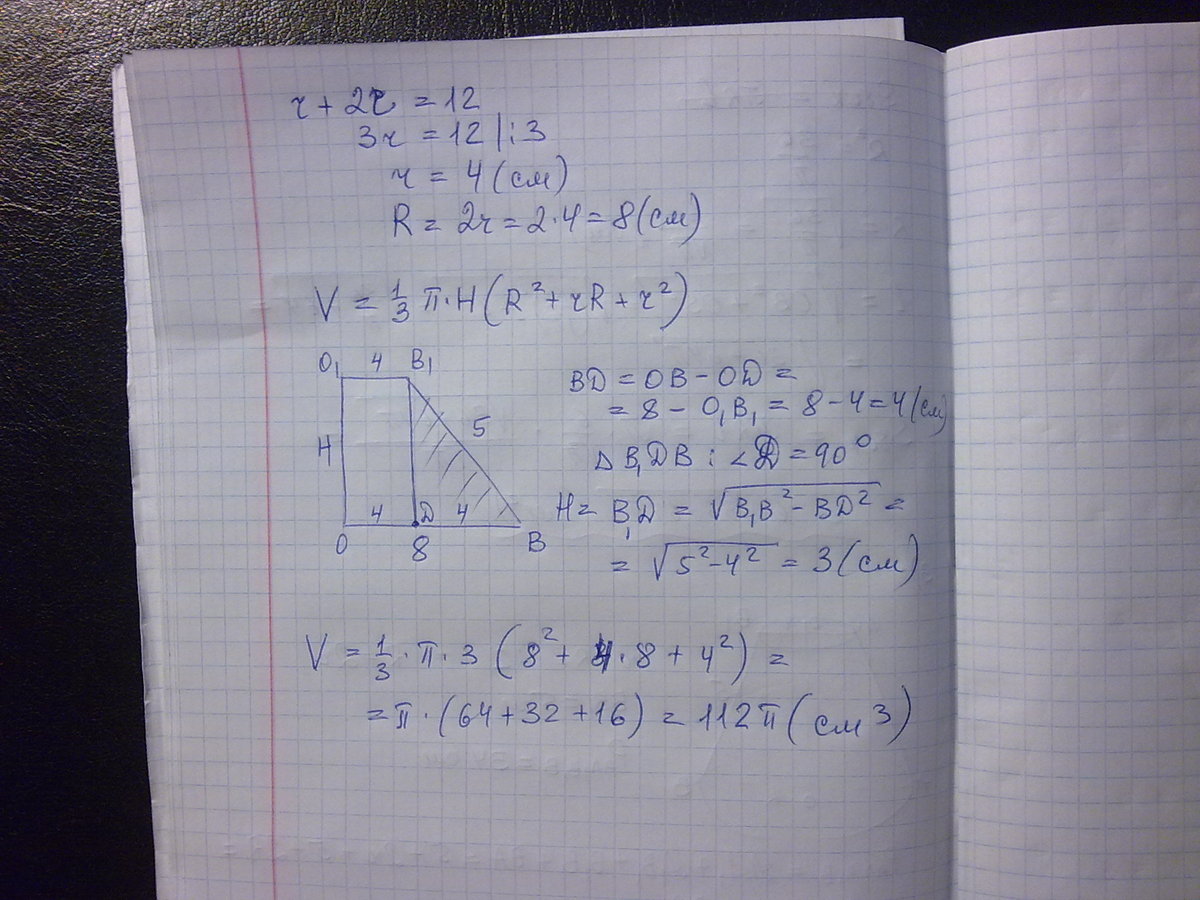 r + 2r = 12
3r = 12 | : 3
r = 4 (см)
R = 2r = 2·4 = 8 (см)
V = 1/3 π·H (R² + rR + r²)
O₁ 4 B₁
H 5
4 D 4
O 8 B
BD = OB – OD =
= 8 – O₁B₁ = 8 – 4 = 4 (см)
Δ B₁DB : ∠D = 90°
H = B₁D = √(B₁B² – BD²) =
= √(5² – 4²) = 3 (см)
V = 1/3 · π · 3 (8² + 4 · 8 + 4²) =
= π · (64 + 32 + 16) = 112π (см³)